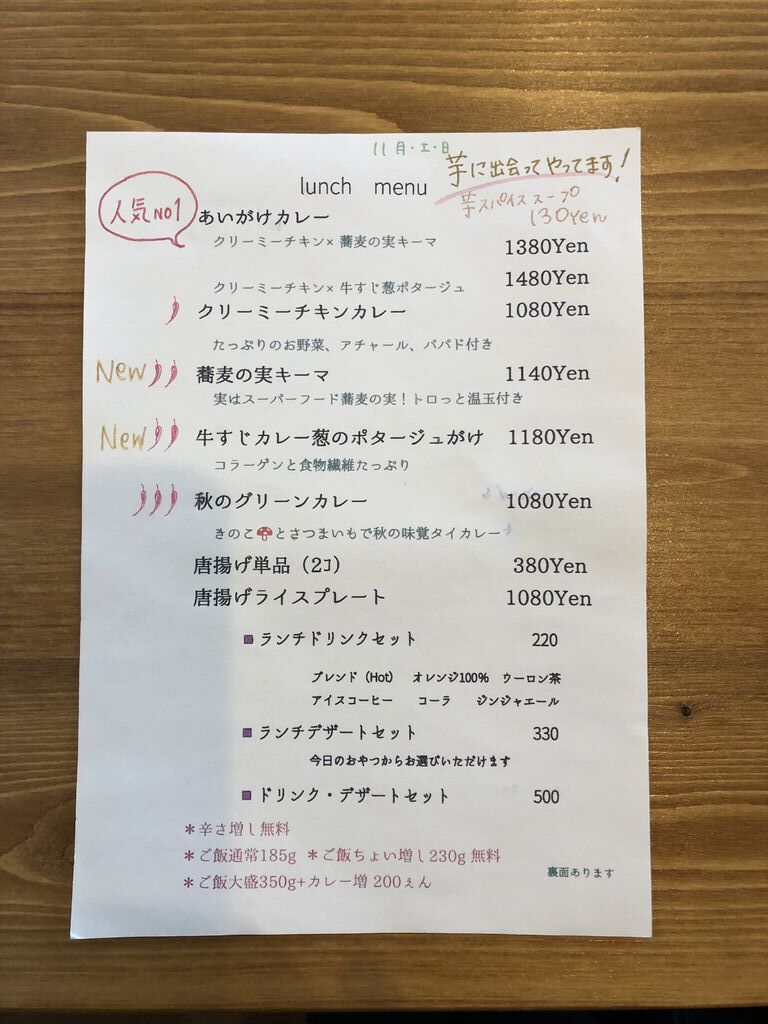 11月・土・日
芋に出会ってやってます!
lunch menu
芋スパイススープ
130yen
人気NO1
あいがけカレー
クリーミーチキン×蕎麦の実キーマ 1380Yen
クリーミーチキン×牛すじ葱ポタージュ 1480Yen
クリーミーチキンカレー 1080Yen
たっぷりのお野菜、アチャール、パパド付き
New 蕎麦の実キーマ 1140Yen
実はスーパーフード蕎麦の実!トロっと温玉付き
New 牛すじカレー葱のポタージュがけ 1180Yen
コラーゲンと食物繊維たっぷり
秋のグリーンカレー 1080Yen
きのこ🍄とさつまいもで秋の味覚タイカレー
唐揚げ単品(2コ) 380Yen
唐揚げライスプレート 1080Yen
■ランチドリンクセット 220
ブレンド(Hot) オレンジ100% ウーロン茶
アイスコーヒー コーラ ジンジャエール
■ランチデザートセット 330
今日のおやつからお選びいただけます
■ドリンク・デザートセット 500
*辛さ増し無料
*ご飯通常185g *ご飯ちょい増し230g 無料
*ご飯大盛350g+カレー増 200ぇん
裏面あります